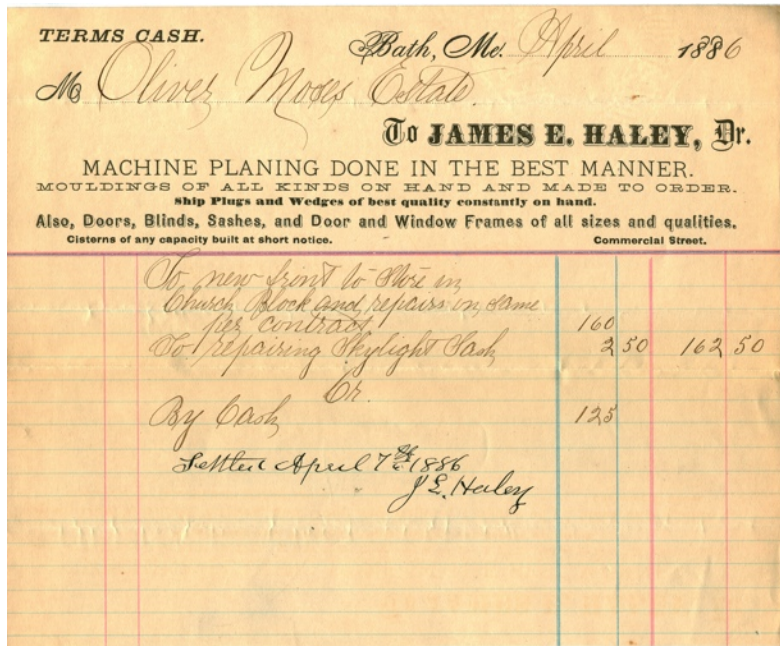 TERMS CASH.
Bath, Me. April 1886
M Oliver Moses Estate
To JAMES E. HALEY, Dr.
MACHINE PLANING DONE IN THE BEST MANNER.
MOULDINGS OF ALL KINDS ON HAND AND MADE TO ORDER.
Ship Plugs and Wedges of best quality constantly on hand.
Also, Doors, Blinds, Sashes, and Door and Window Frames of all sizes and qualities.
Cisterns of any capacity built at short notice. Commercial Street.
To new front to Store in
Church Block and repairs on same
per contract. 160
To repairing Skylight Sash 2 50 162 50
Cr.
By Cash 125
Settled April 7th 1886
J E. Haley